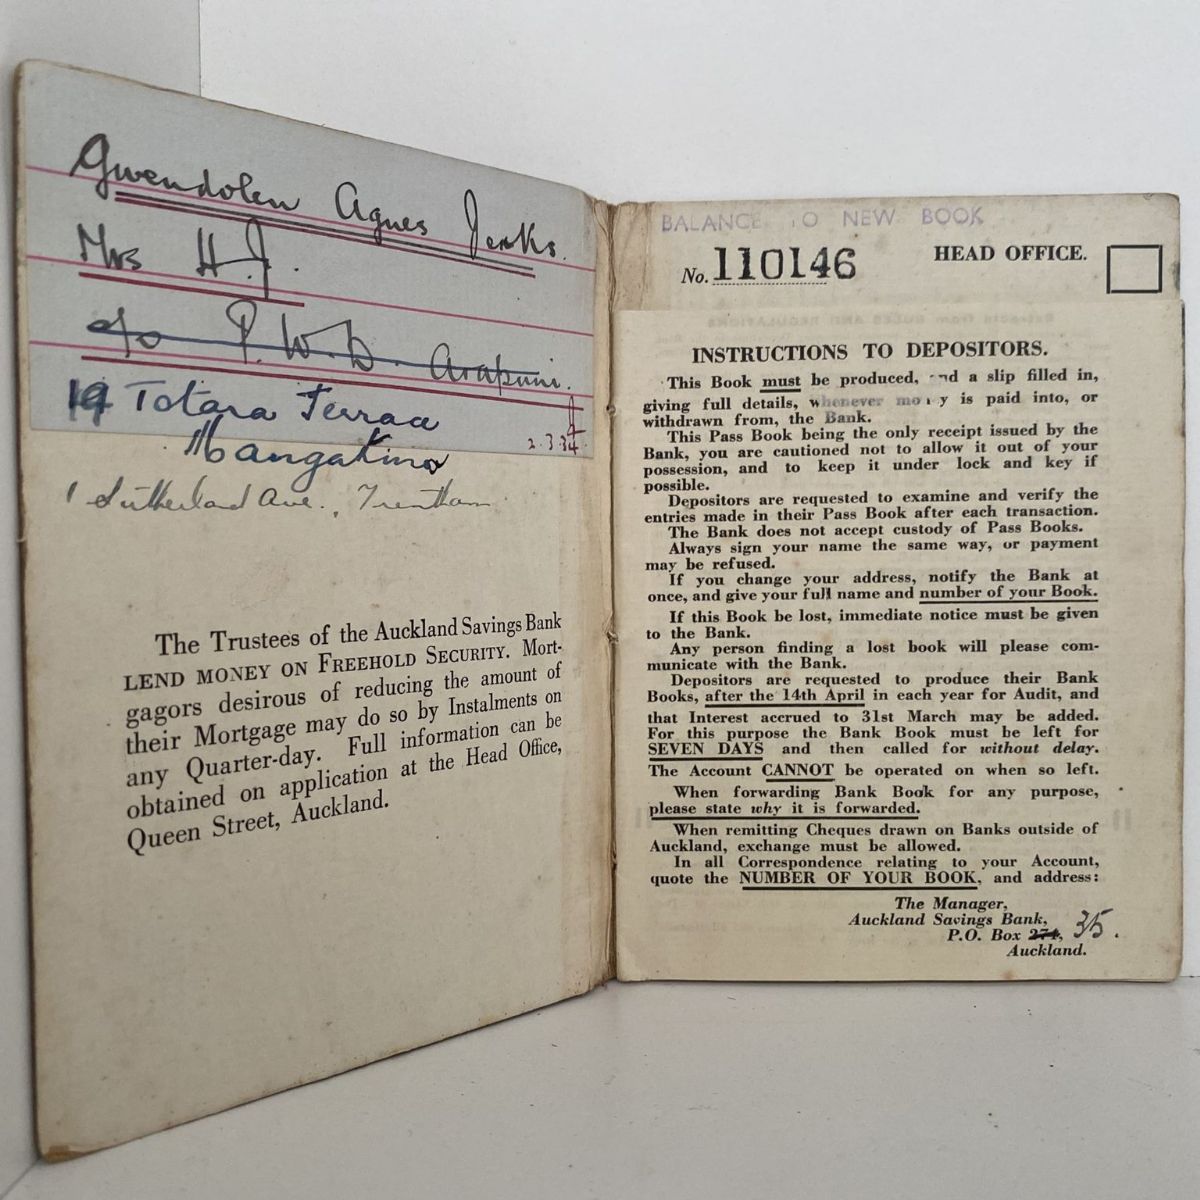 Gwendolen Agnes Jenks.
Mrs H. J.
c/o P. W. D. Arapuni.
19 Totara Terrace
Mangakino
2.3.34
1 Sutherland Ave., Trentham
The Trustees of the Auckland Savings Bank
LEND MONEY ON FREEHOLD SECURITY. Mort-
gagors desirous of reducing the amount of
their Mortgage may do so by Instalments on
any Quarter-day. Full information can be
obtained on application at the Head Office,
Queen Street, Auckland.
BALANCE TO NEW BOOK
No. 110146 HEAD OFFICE.
INSTRUCTIONS TO DEPOSITORS.
This Book must be produced, and a slip filled in,
giving full details, whenever money is paid into, or
withdrawn from, the Bank.
This Pass Book being the only receipt issued by the
Bank, you are cautioned not to allow it out of your
possession, and to keep it under lock and key if
possible.
Depositors are requested to examine and verify the
entries made in their Pass Book after each transaction.
The Bank does not accept custody of Pass Books.
Always sign your name the same way, or payment
may be refused.
If you change your address, notify the Bank at
once, and give your full name and number of your Book.
If this Book be lost, immediate notice must be given
to the Bank.
Any person finding a lost book will please com-
municate with the Bank.
Depositors are requested to produce their Bank
Books, after the 14th April in each year for Audit, and
that Interest accrued to 31st March may be added.
For this purpose the Bank Book must be left for
SEVEN DAYS and then called for without delay.
The Account CANNOT be operated on when so left.
When forwarding Bank Book for any purpose,
please state why it is forwarded.
When remitting Cheques drawn on Banks outside of
Auckland, exchange must be allowed.
In all Correspondence relating to your Account,
quote the NUMBER OF YOUR BOOK, and address:
The Manager,
Auckland Savings Bank,
P.O. Box 274, 35.
Auckland.